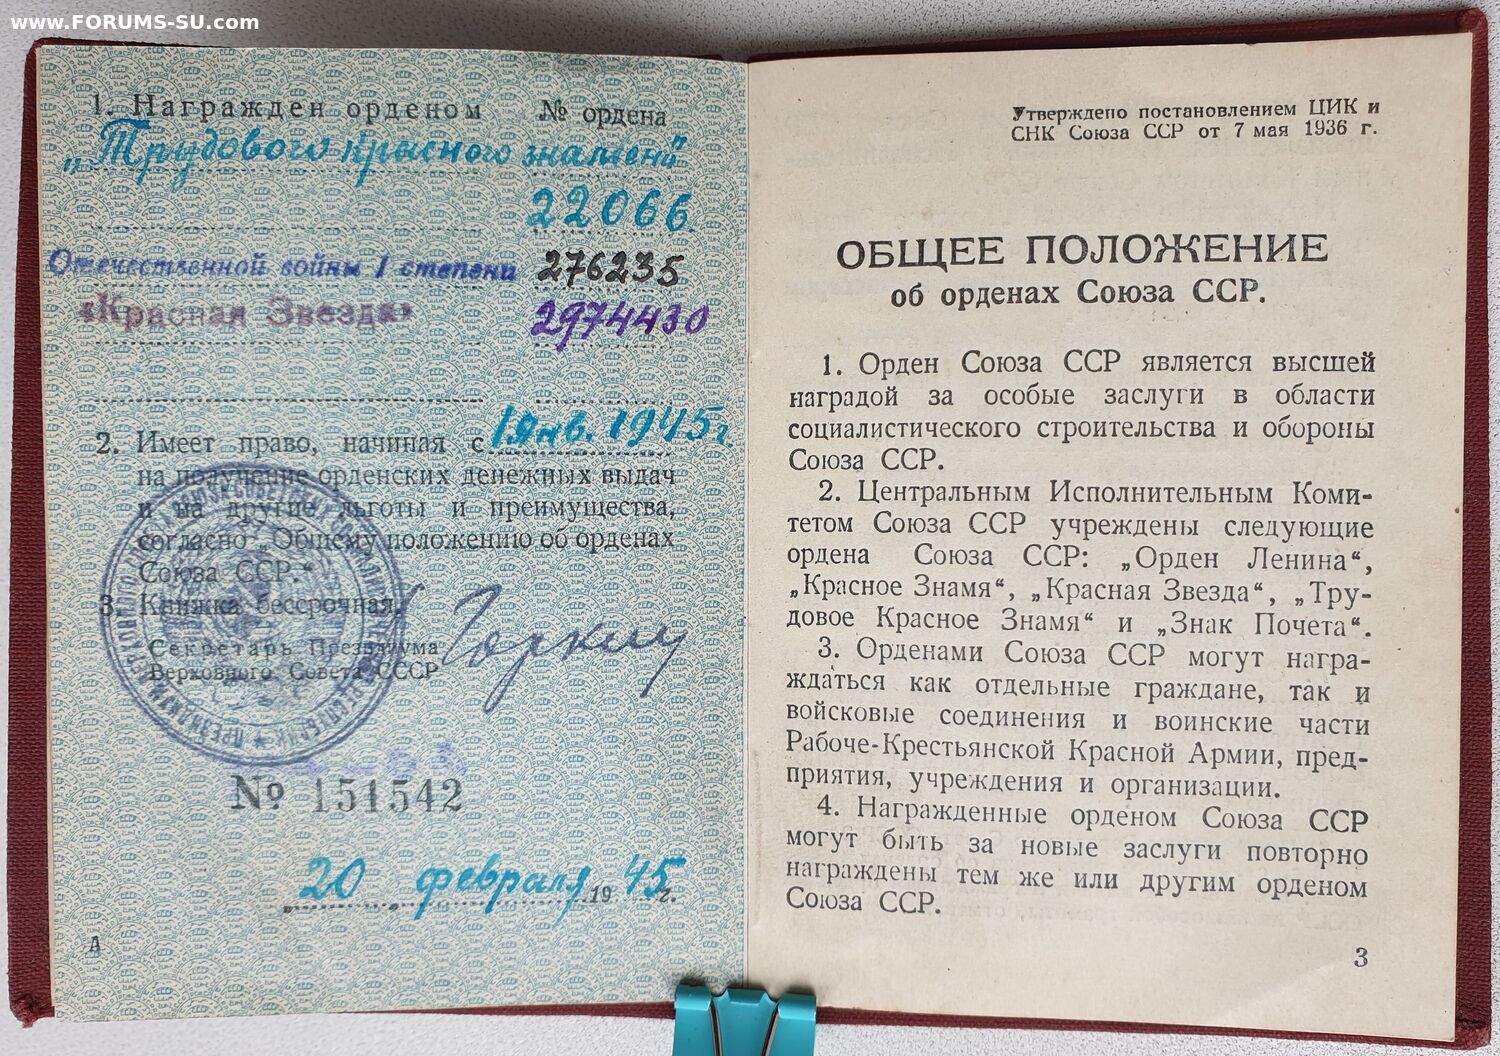 www.FORUMS-SU.com
1. Награжден орденом № ордена
„Трудового красного знамени"
22066.
Отечественной войны I степени 276235
«Красная Звезда» 2974430
2. Имеет право, начиная с 1 янв. 1945 г.
на получение орденских денежных выдач
и на другие льготы и преимущества,
согласно „Общему положению об орденах
Союза ССР."
3. Книжка бессрочная.
Секретарь Президиума
Верховного Совета СССР Горкин
№ 151542
„20 февраля 1945 г.
А
Утверждено постановлением ЦИК и
СНК Союза ССР от 7 мая 1936 г.
ОБЩЕЕ ПОЛОЖЕНИЕ
об орденах Союза ССР.
1. Орден Союза ССР является высшей
наградой за особые заслуги в области
социалистического строительства и обороны
Союза ССР.
2. Центральным Исполнительным Коми-
тетом Союза ССР учреждены следующие
ордена Союза ССР: „Орден Ленина“,
„Красное Знамя“, „Красная Звезда“, „Тру-
довое Красное Знамя“ и „Знак Почета“.
3. Орденами Союза ССР могут награ-
ждаться как отдельные граждане, так и
войсковые соединения и воинские части
Рабоче-Крестьянской Красной Армии, пред-
приятия, учреждения и организации.
4. Награжденные орденом Союза ССР
могут быть за новые заслуги повторно
награждены тем же или другим орденом
Союза ССР.
3